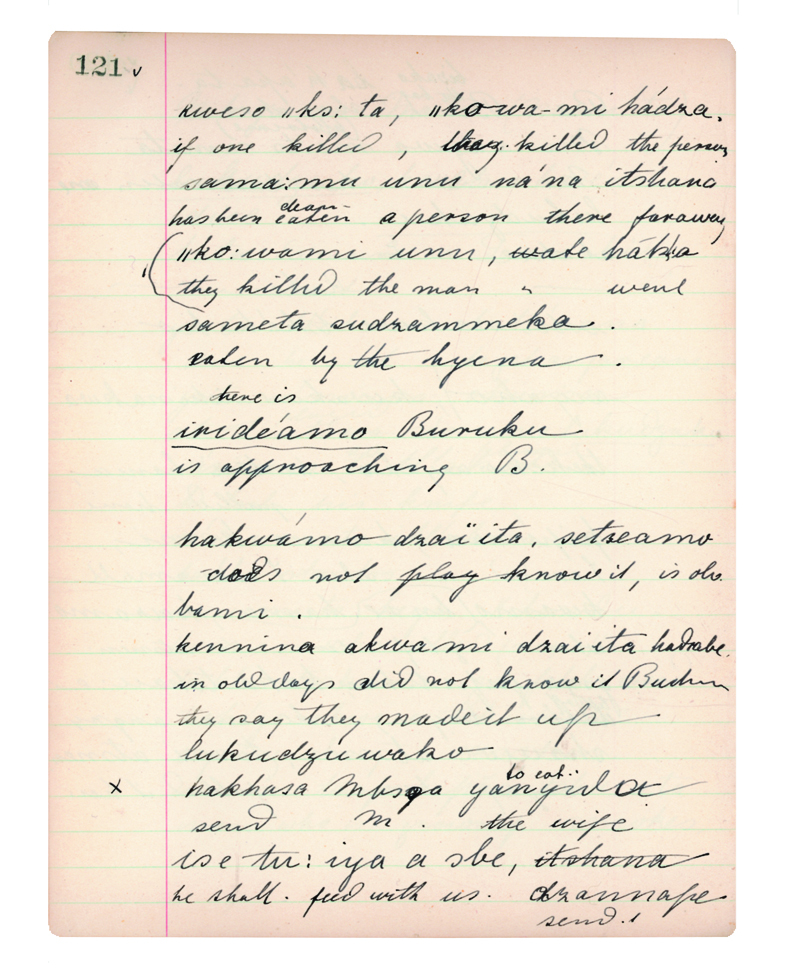 121 ✓
kweso "ks: ta, "ko wa-mi hádza.
if one killed, they killed the person
sama:mu unu ná'na itshana
has been eaten a person there faraway
"ko: wami unu, wate hátśa
they killed the man " went
sameta sudzammeka.
eaten by the hyena.
there is
irideámo Buruku
is approaching B.
hakwámo dzaïita, setseamo
does not play know it, is
bami.
kennina akwa mi dzaiita hadzabe.
in old days did not know it
they say they made it up
lukudzuwako
x hakhasa Mbsqa
to eat
send M. the wife
ise tu: iya a sbe, itshana
he shall. with us. dzannape
send!